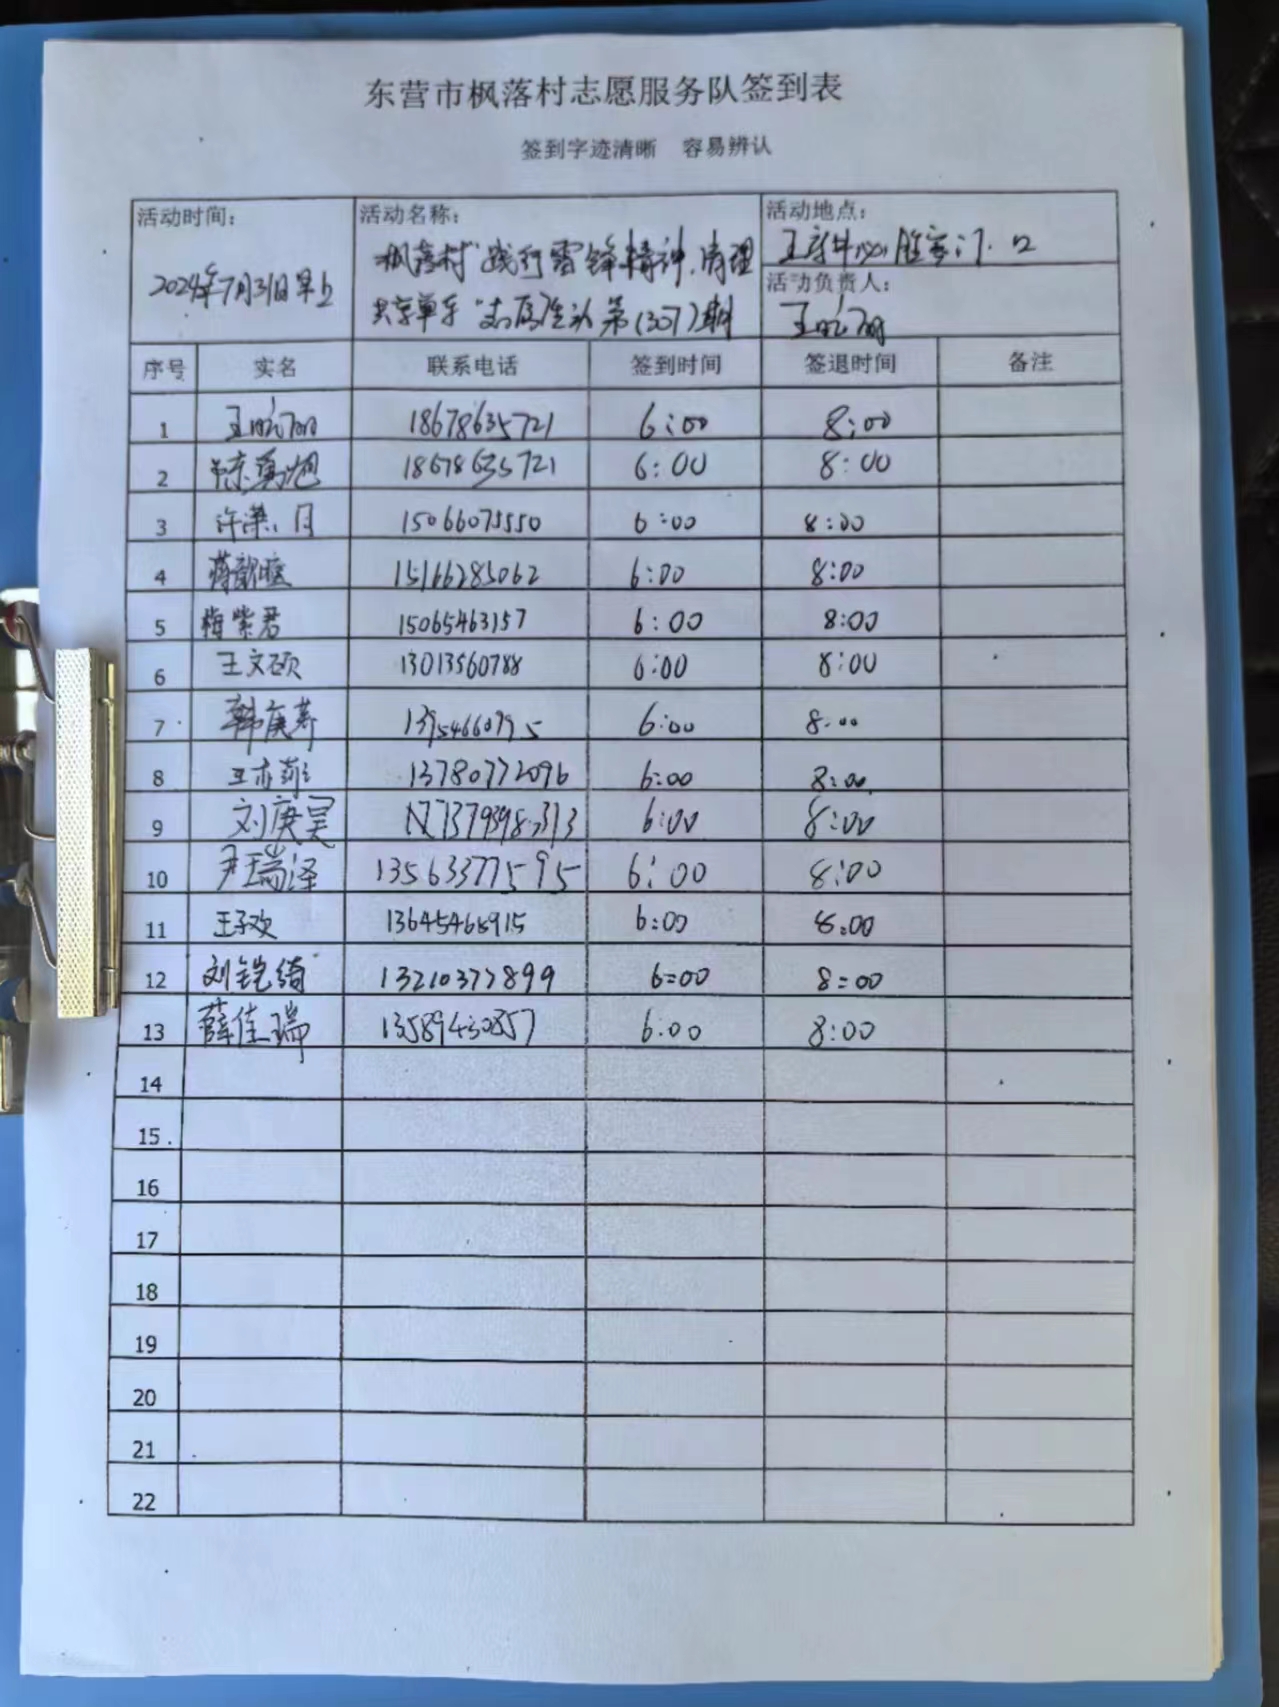 东营市枫落村志愿服务队签到表
签到字迹清晰 容易辨认
活动时间：
2024年7月31日早上
活动名称：
"枫落村"践行雷锋精神，清理
共享单车"志愿 第(307)期
活动地点：
王府井必胜客门口
活动负责人：
王
序号 实名 联系电话 签到时间 签退时间 备注
1 王 18678635721 6:00 8:00
2 18678635721 6:00 8:00
3 许 月 15066075550 6:00 8:00
4 蒋歆 15166285062 6:00 8:00
5 梅紫君 15065463157 6:00 8:00
6 王文硕 13013560788 6:00 8:00
7 韩 6:00 8:00
8 王亦菲 13780772096 6:00 8:00
9 刘庚昊 6:00 8:00
10 尹瑞泽 13563377595 6:00 8:00
11 王子欢 13645468915 6:00 8:00
12 刘铠绮 13210377899 6:00 8:00
13 薛佳瑞 13589430857 6:00 8:00
14
15
16
17
18
19
20
21
22